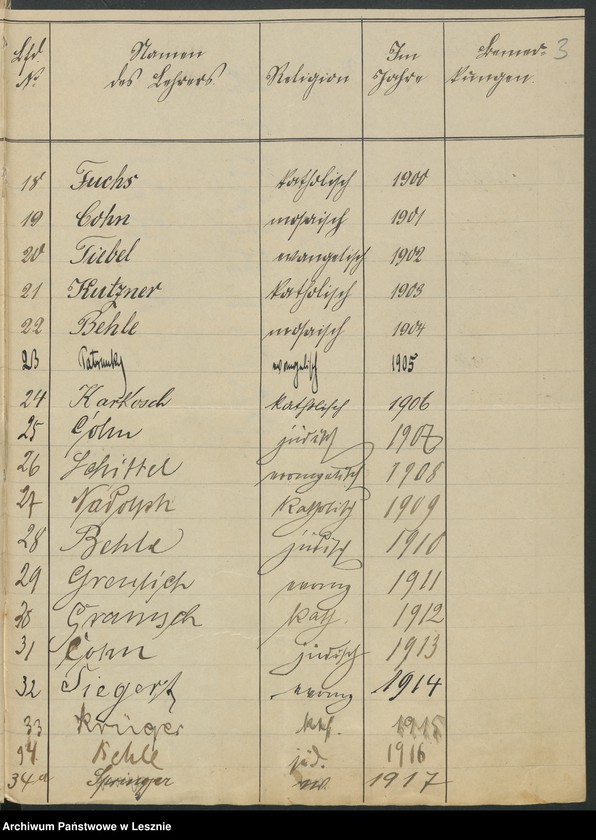 Lfd. Namen Religion Im Bemer- 3
No. des Lehrers. Jahre kungen.
18 Fuchs katholisch 1900
19 Cohn mosaisch 1901
20 Tiebel evangelisch 1902
21 Kutzner katholisch 1903
22 Behle mosaisch 1904
23 evangelisch 1905
24 Karkosch katholisch 1906
25 Cohn jüdisch 1907
26 Schittel evangelisch 1908
27 Nadolph katholisch 1909
28 Behle jüdisch 1910
29 Greulich evang 1911
30 Gramsch kath. 1912
31 Cohn jüdisch 1913
32 Siegert evang 1914
33 Krüger kth. 1915
34. Behle jüd. 1916
34a Springer ev. 1917
Archiwum Państwowe w Lesznie